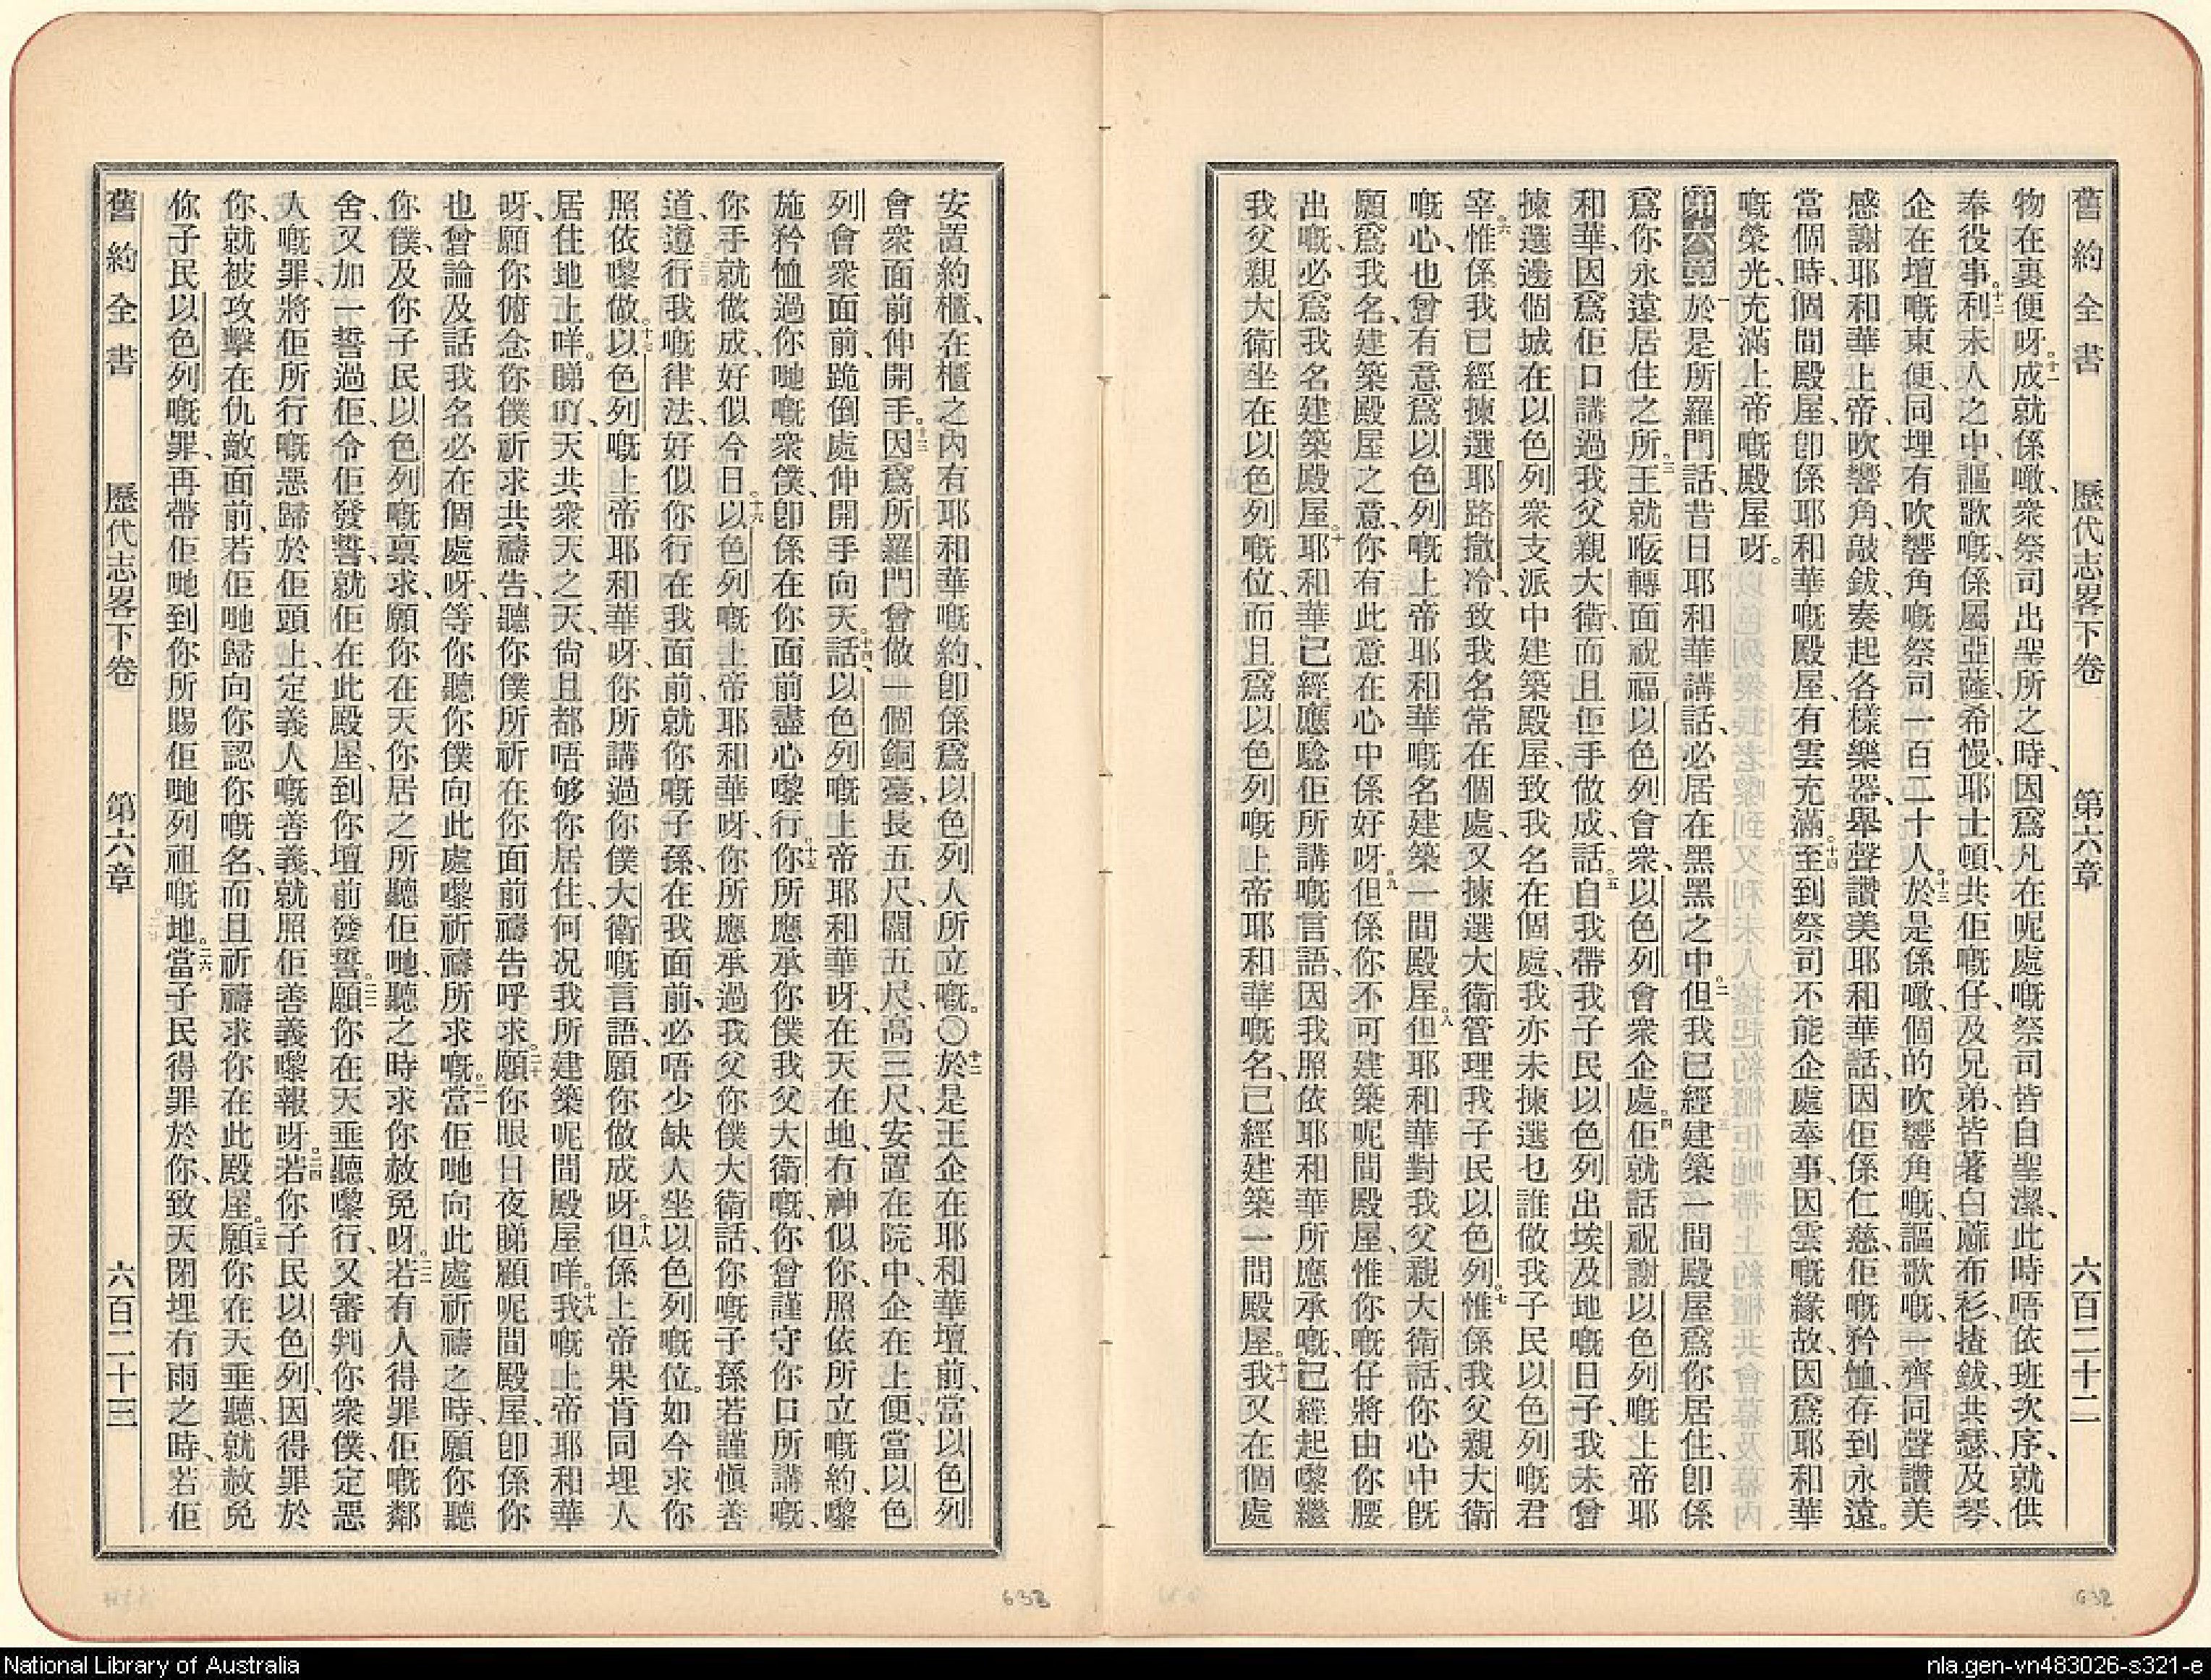 舊約全書 歷代志畧下卷 第六章 六百二十二
物在裏便呀。十一成就係噉、衆祭司出聖所之時、因爲凡在呢處嘅祭司皆自聖潔、此時唔依班次序、就供
奉役事。十二利未人之中、謳歌嘅、係屬亞薩、希幔、耶士頓、共佢嘅仔、及兄弟、皆著白蔴布衫、揸鈸、共瑟、及琴、
企在壇嘅東便、同埋有吹響角嘅祭司一百二十人。十三於是係噉、個的吹響角嘅、謳歌嘅、一齊同聲讚美
感謝耶和華上帝、吹響角、敲鈸、奏起各樣樂器、舉聲讚美耶和華話、因佢係仁慈、佢嘅矜恤、存到永遠。
當個時、個間殿屋、卽係耶和華嘅殿屋、有雲充滿。十四至到祭司不能企處奉事、因雲嘅緣故、因爲耶和華
嘅榮光、充滿上帝嘅殿屋呀。
第六章一於是所羅門話、昔日耶和華講話、必居在黑黑之中。二但我已經建築一間殿屋爲你居住、卽係
爲你永遠居住之所。三王就喺轉面祝福以色列會衆、以色列會衆企處。四佢就話、祝謝以色列嘅上帝耶
和華、因爲佢口講過我父親大衛、而且佢手做成、話、五自我帶我子民以色列出埃及地嘅日子、我未曾
揀選邊個城在以色列衆支派中建築殿屋、致我名在個處、我亦未揀選乜誰做我子民以色列嘅君
宰。六惟係我已經揀選耶路撒冷、致我名常在個處、又揀選大衛管理我子民以色列。七惟係我父親大衛
嘅心、也曾有意爲以色列嘅上帝耶和華嘅名建築一間殿屋。八但耶和華對我父親大衛話、你心中旣
願爲我名、建築殿屋之意、你有此意在心中係好呀。九但係你不可建築呢間殿屋、惟你嘅仔將由你腰
出嘅、必爲我名建築殿屋。十耶和華已經應驗佢所講嘅言語、因我照依耶和華所應承嘅、已經起嚟繼
我父親大衛坐在以色列嘅位、而且爲以色列嘅上帝耶和華嘅名、已經建築一間殿屋。十一我又在個處
安置約櫃、在櫃之內有耶和華嘅約、卽係爲以色列人所立嘅。〇十二於是王企在耶和華壇前、當以色列
會衆面前伸開手。十三因爲所羅門曾做一個銅臺、長五尺、闊五尺、高三尺、安置在院中、企在上便、當以色
列會衆面前、跪倒處、伸開手向天。十四話、以色列嘅上帝耶和華呀、在天在地、冇神似你、照依所立嘅約、嚟
施矜恤過你哋嘅衆僕、卽係在你面前盡心嚟行。十五你所應承你僕我父大衛嘅、你曾謹守你口所講嘅、
你手就做成、好似今日。十六以色列嘅上帝耶和華呀、你所應承過我父你僕大衛話、你嘅子孫若謹愼善
道、遵行我嘅律法、好似你行在我面前、就你嘅子孫、在我面前、必唔少缺人坐以色列嘅位。如今求你
照依嚟做。十七以色列嘅上帝耶和華呀、你所講過你僕大衛嘅言語、願你做成呀。十八但係上帝果肯同埋人
居住地上咩。睇吖、天共衆天之天、尚且都唔够你居住、何况我所建築呢間殿屋咩。十九我嘅上帝耶和華
呀、願你俯念你僕祈求共禱告、聽你僕所祈在你面前禱告呼求。二十願你眼日夜睇顧呢間殿屋、卽係你
也曾論及話我名必在個處呀、等你聽你僕向此處嚟祈禱所求嘅。二一當佢哋向此處祈禱之時、願你聽
你僕、及你子民以色列嘅禀求、願你在天、你居之所聽佢哋、聽之時求你赦免呀。二二若有人得罪佢嘅鄰
舍、又加一誓過佢、令佢發誓、就佢在此殿屋、到你壇前發誓。二三願你在天垂聽嚟行、又審判你衆僕、定惡
人嘅罪、將佢所行嘅惡歸於佢頭上、定義人嘅善義、就照佢善義嚟報呀。二四若你子民以色列、因得罪於
你、就被攻擊在仇敵面前、若佢哋歸向你、認你嘅名、而且祈禱求你在此殿屋。二五願你在天垂聽、就赦免
你子民以色列嘅罪、再帶佢哋到你所賜佢哋列祖嘅地。二六當子民得罪於你、致天閉埋冇雨之時、若佢
舊約全書 歷代志畧下卷 第六章 六百二十三
632
633
National Library of Australia
nla.gen-vn483026-s321-e